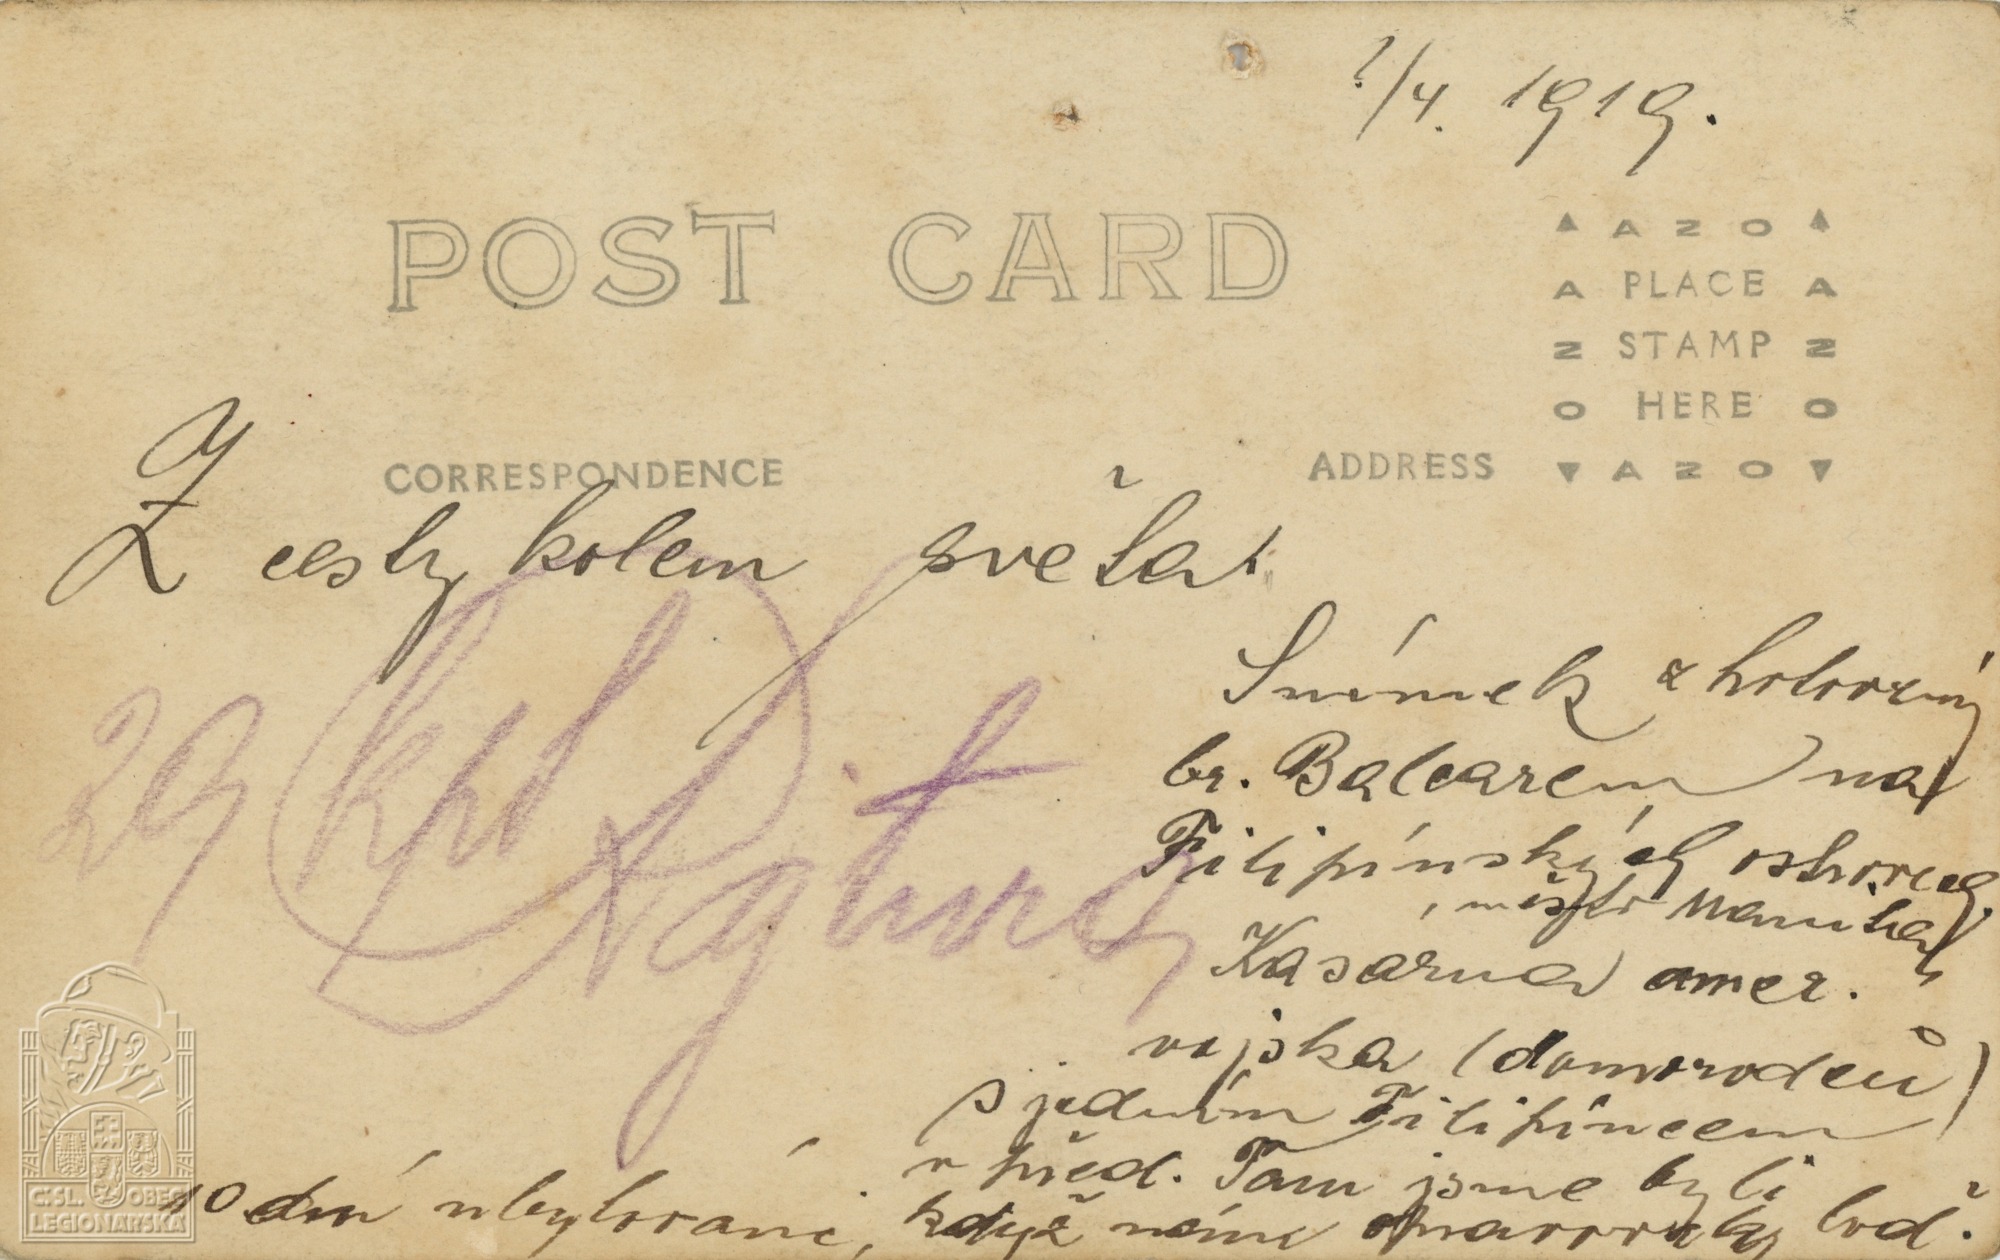 /4. 1919.
POST CARD
▲ AZO ▲
A PLACE A
Z STAMP Z
O HERE O
▼ AZO ▼
CORRESPONDENCE
ADDRESS
Z cesty kolem světa!
29
Snímek zhotovený
br. Balcarem na
Filipínských ostrovech
, město Manila,
Kasárna amer.
vojska (domorodců)
s jedním Filipíncem
v před. Tam jsme byli
10 dní ubytováni, když nám opravovaly loď.
ČSL. OBEC
LEGIONÁŘSKÁ